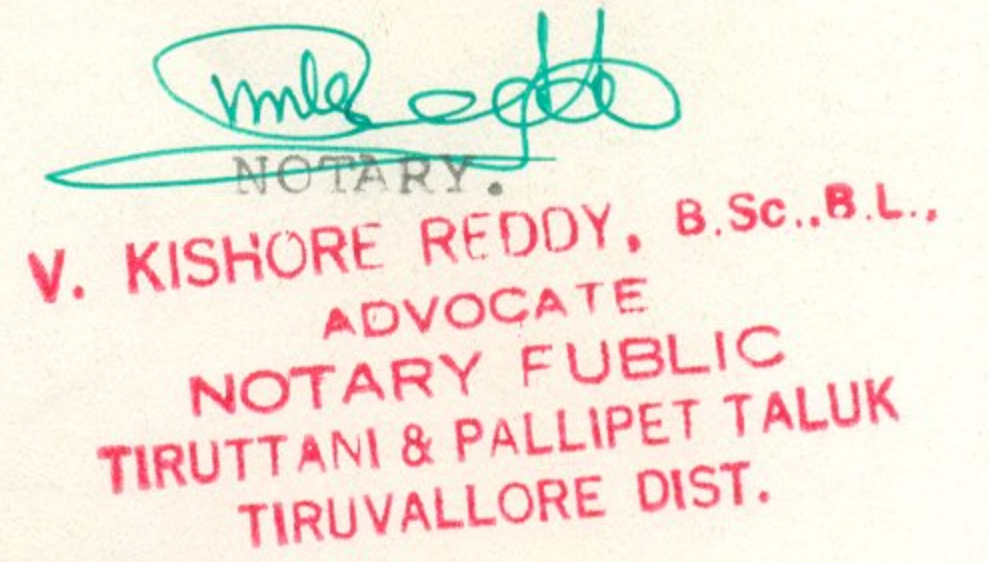 NOTARY.
V. KISHORE REDDY, B.Sc.,B.L.,
ADVOCATE
NOTARY FUBLIC
TIRUTTANI & PALLIPET TALUK
TIRUVALLORE DIST.